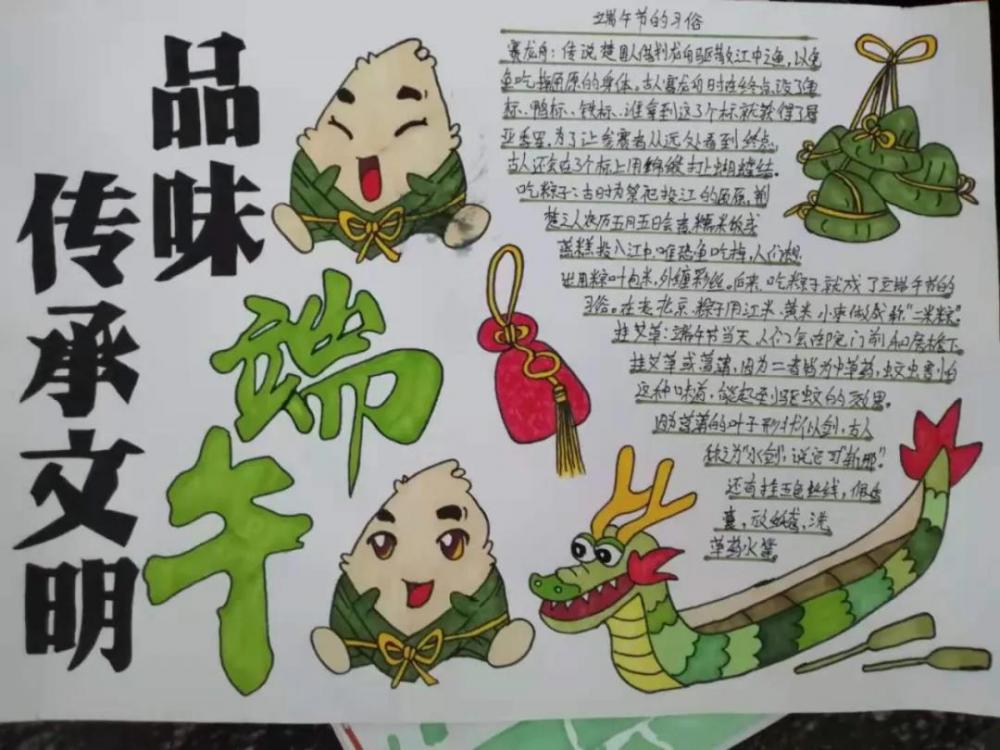 品味
传承文明
端午
端午节的习俗
赛龙舟：传说楚国人借划龙舟驱散江中之鱼，以免
鱼吃掉屈原的身体。古人赛龙舟时在终点设了鱼
标、鸭标、铁标、谁拿到这3个标就获得了冠
亚季军，为了让参赛者从远处看到终点，
古人还会在3个标上用绵缎打上蝴蝶结。
吃粽子：古时为祭祀投江的屈原，荆
楚之人农历五月五日会煮糯米饭或
蒸糕投入江中，唯恐鱼吃掉，人们想
出用粽叶包米，外缠彩丝。后来，吃粽子就成了立端午节的
习俗。在老北京，粽子用江米、黄米、小枣做成称"二米粽"
挂艾草：端午节当天，人们会在院门前和房檐下
挂艾草或菖蒲，因为二者皆为中草药，蚊虫害怕
这种味道，能起到驱蚊的效果。
因为菖蒲的叶子形状似剑，古人
称之为"水剑"，说它可"斩邪"。
还有挂五色丝线，佩香
囊，放纸鸢，洗
草药水等。